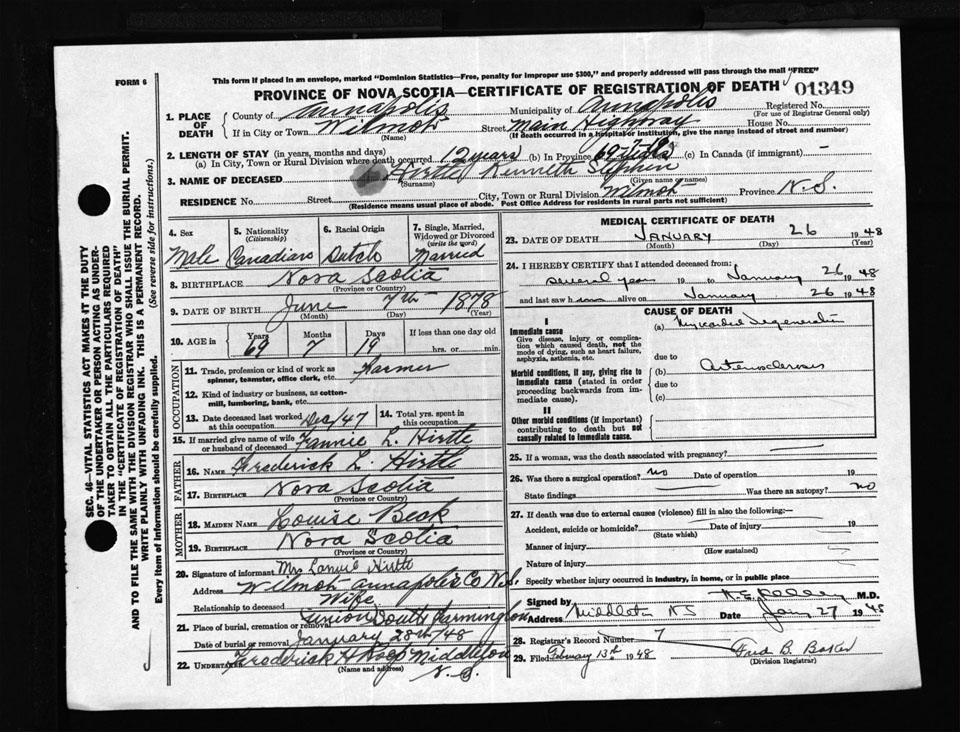 FORM 6
This form if placed in an envelope, marked "Dominion Statistics—Free, penalty for improper use $300," and properly addressed will pass through the mail "FREE"
PROVINCE OF NOVA SCOTIA—CERTIFICATE OF REGISTRATION OF DEATH
01349
1. PLACE OF DEATH
County of Annapolis Municipality of Annapolis Registered No.
(For use of Registrar General only)
If in City or Town Wilmot Street Main Highway House No.
(Name) (If death occurred in a hospital or institution, give the name instead of street and number)
2. LENGTH OF STAY (in years, months and days)
(a) In City, Town or Rural Division where death occurred 12 years (b) In Province 69-7-19 (c) In Canada (if immigrant) —
3. NAME OF DECEASED Hirtle Kenneth
(Surname) (Given name or names)
RESIDENCE No. Street City, Town or Rural Division Wilmot Province N.S.
(Residence means usual place of abode. Post Office Address for residents in rural parts not sufficient)
4. Sex
Male
5. Nationality
(Citizenship)
Canadian
6. Racial Origin
Dutch
7. Single, Married, Widowed or Divorced
(write the word)
Married
8. BIRTHPLACE Nova Scotia
(Province or Country)
9. DATE OF BIRTH June 7th 1878
(Month) (Day) (Year)
10. AGE in Years Months Days If less than one day old
69 7 19 hrs. or min.
OCCUPATION
11. Trade, profession or kind of work as spinner, teamster, office clerk, etc. Farmer
12. Kind of industry or business, as cotton-mill, lumbering, bank, etc.
13. Date deceased last worked at this occupation Dec/47
14. Total yrs. spent in this occupation
15. If married give name of wife or husband of deceased Fannie L. Hirtle
FATHER
16. NAME Frederick L. Hirtle
17. BIRTHPLACE Nova Scotia
(Province or Country)
MOTHER
18. MAIDEN NAME Louise Beak
19. BIRTHPLACE Nova Scotia
(Province or Country)
20. Signature of informant Mrs Hirtle
Address Wilmot Annapolis Co N.S.
Relationship to deceased Wife
21. Place of burial, cremation or removal South Farmington
Date of burial or removal January 28th/48
22. UNDERTAKER Frederick H Middleton
(Name and address) N.S.
MEDICAL CERTIFICATE OF DEATH
23. DATE OF DEATH JANUARY 26 1948
(Month) (Day) (Year)
24. I HEREBY CERTIFY that I attended deceased from:
several years 19 to January 26 1948
and last saw him alive on January 26 1948
CAUSE OF DEATH
I
Immediate cause
Give disease, injury or complication which caused death, not the mode of dying, such as heart failure, asphyxia, asthenia, etc.
(a) Myocardial Degeneration
due to
Morbid conditions, if any, giving rise to immediate cause (stated in order proceeding backwards from immediate cause).
(b) Arteriosclerosis
due to
(c)
II
Other morbid conditions (if important) contributing to death but not causally related to immediate cause.
25. If a woman, was the death associated with pregnancy? —
26. Was there a surgical operation? no Date of operation 19
State findings Was there an autopsy? no
27. If death was due to external causes (violence) fill in also the following:—
Accident, suicide or homicide? Date of injury 19
(State which)
Manner of injury
(How sustained)
Nature of injury
Specify whether injury occurred in industry, in home, or in public place
Signed by M.D.
Address Middleton NS Date Jan 27 1948
28. Registrar's Record Number 7
29. Filed February 13th 1948 Fred B. Baker
(Division Registrar)
SEC. 46—VITAL STATISTICS ACT MAKES IT THE DUTY OF THE UNDERTAKER OR PERSON ACTING AS UNDERTAKER TO OBTAIN ALL THE PARTICULARS REQUIRED IN THE "CERTIFICATE OF REGISTRATION OF DEATH" AND TO FILE THE SAME WITH THE DIVISION REGISTRAR WHO SHALL ISSUE THE BURIAL PERMIT.
WRITE PLAINLY WITH UNFADING INK. THIS IS A PERMANENT RECORD.
Every item of information should be carefully supplied. (See reverse side for instructions.)